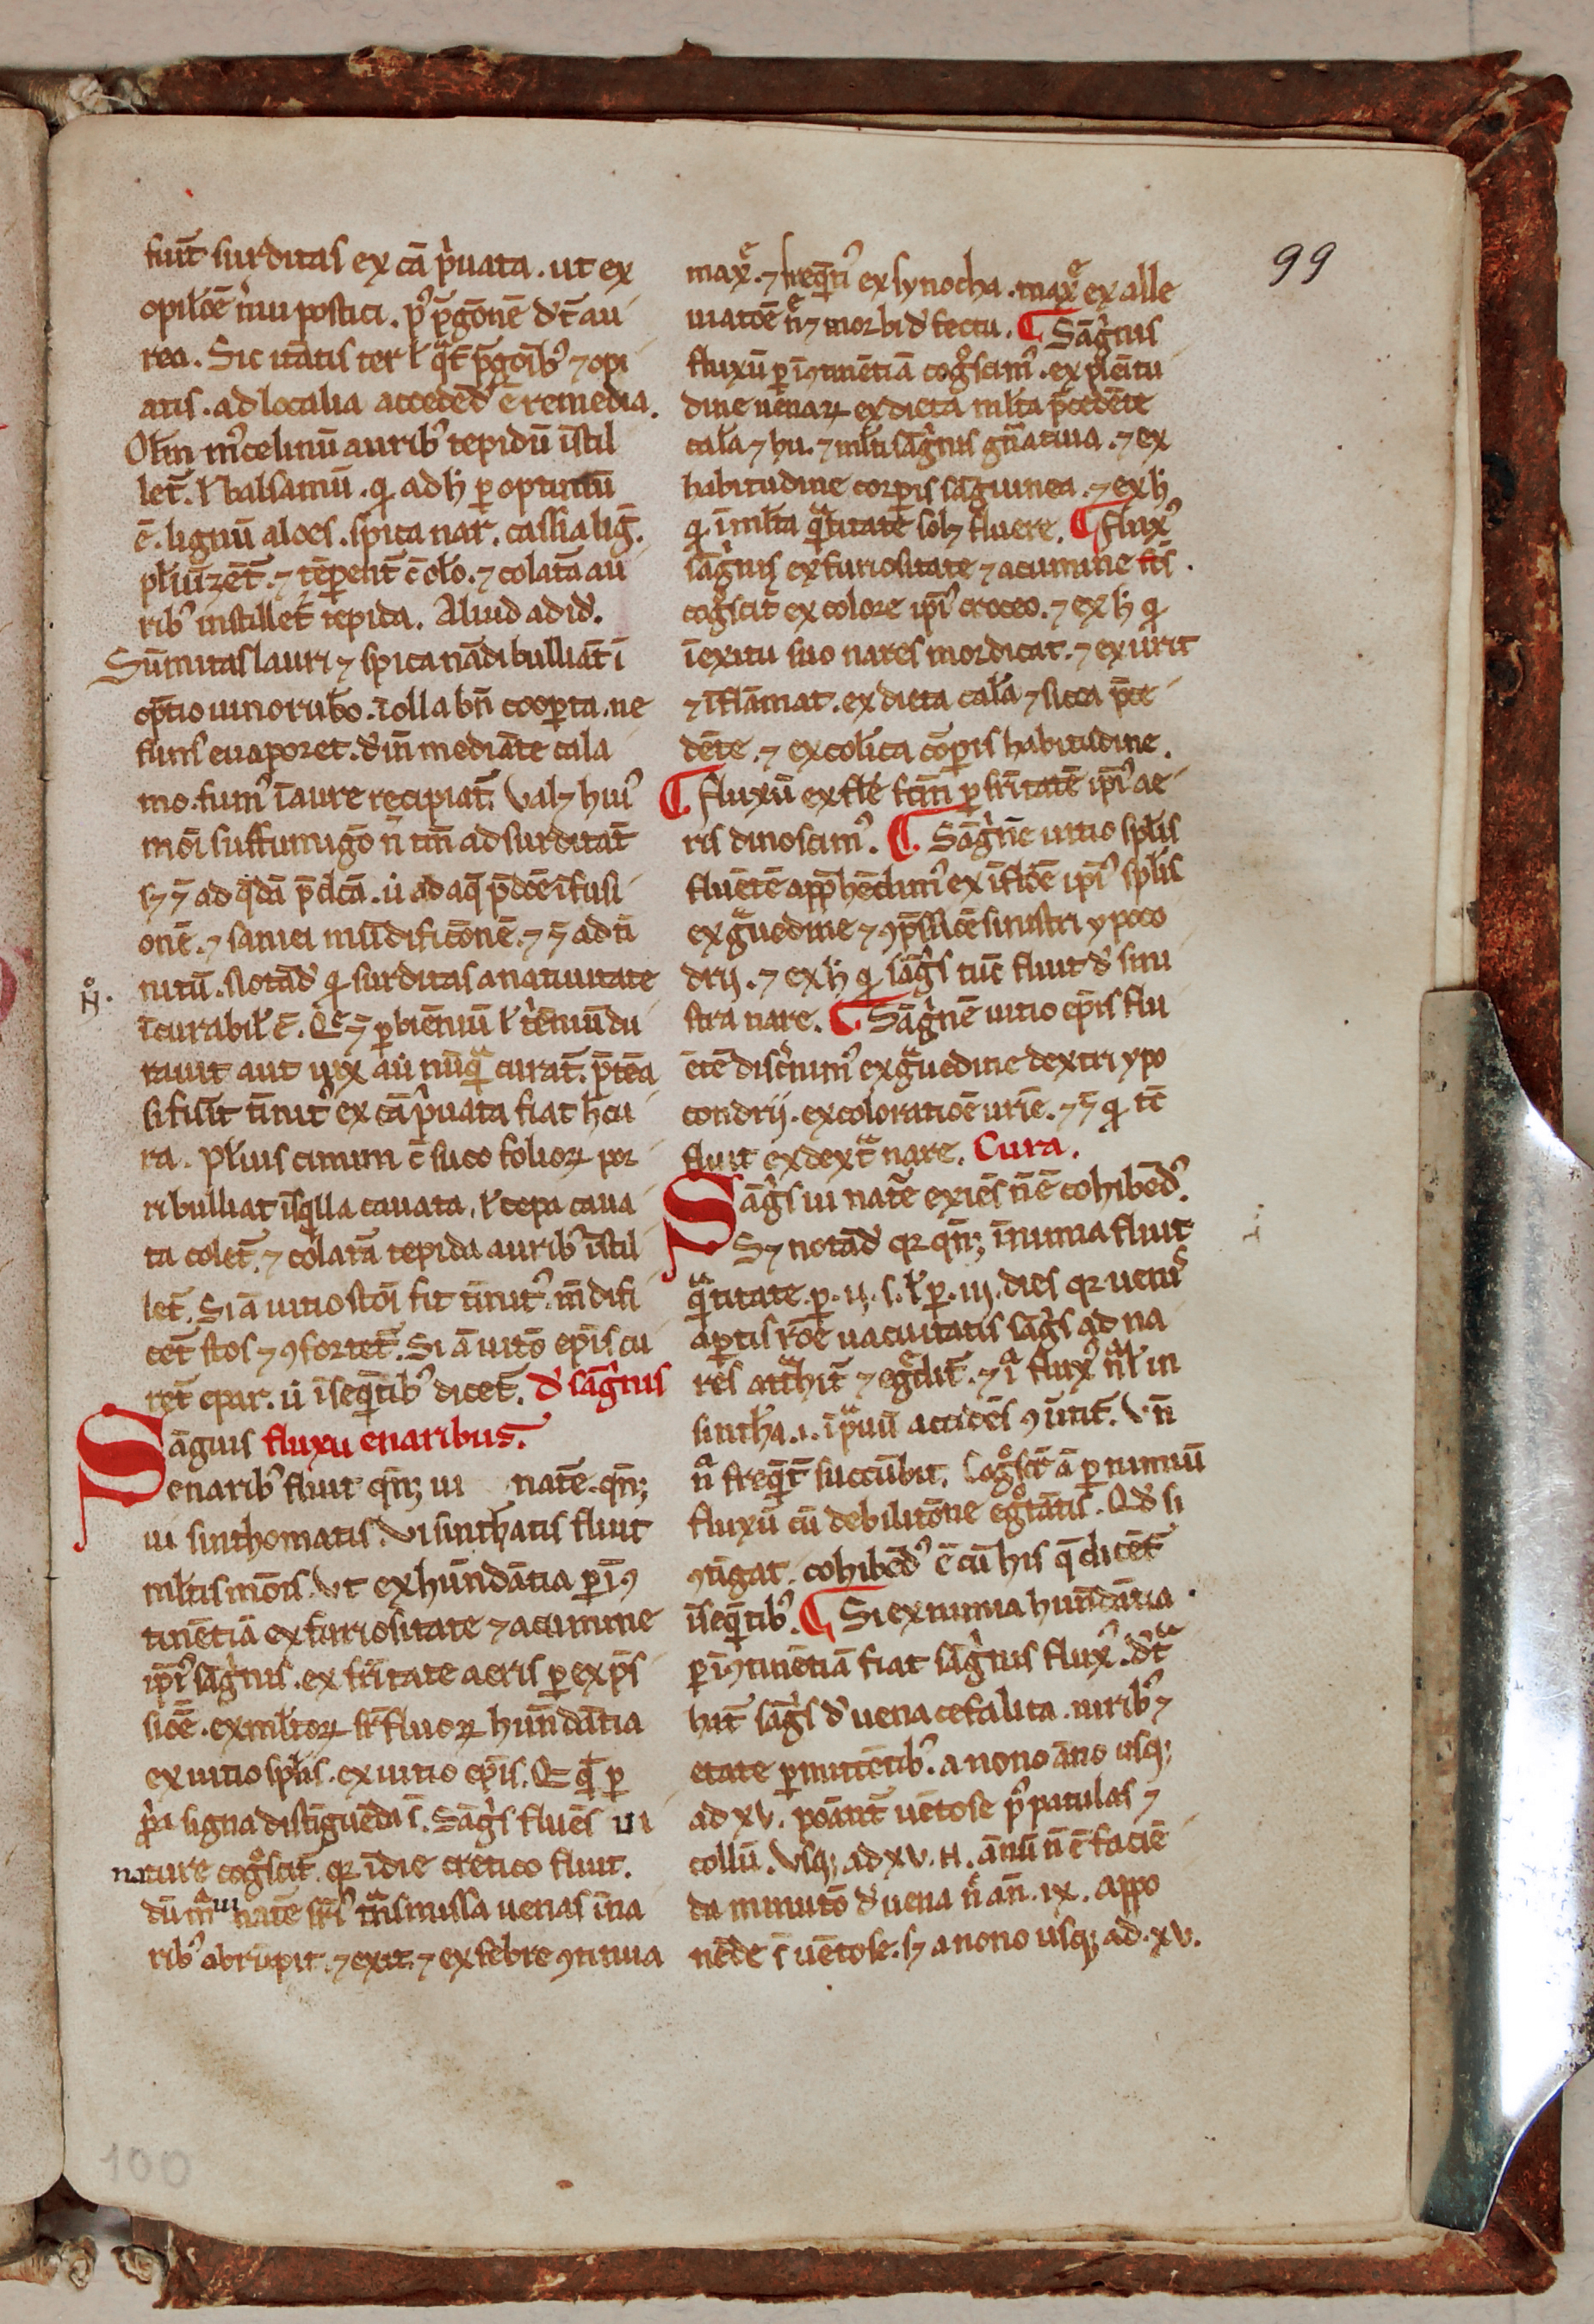 99
fuit̄ surditas ex cā p̾uata . ut ex
opilōē n̾ui postici . p᷒ p̄gōnē dr̄ au
rea . Sic uātis ter ł q̾t p̄gōib᷒ ⁊ opi
atis . ad localia accedēd̾ ē remedia .
Olm̄ m̾celinū aurib᷒ tepidū īstil
let̄ . ł balsamū . qͥ ad h̾ ꝑ optimū
ē . lignū aloes . spica nar . cassia liḡ .
płuīzēt̄ . ⁊ tēꝑent̄ c̄ oło . ⁊ colata au
rib᷒ instillet̄ tepida . Aliud ad id̾ .
Sūmitas lauri ⁊ spica nādi bulliāt ī
optīo uino rubo . ī olla bn̄ cooꝑta . ne
fum᷒ euaporet . d̾in̄ mediāte cala
mo . fum᷒ ī aure recipiat̄ . Valꝫ hui᷒
mōi suffumigō n̄ tm̄ ad surditat̄
sꝫ ⁊̄ ad q̾dā p̄dcā . u̾ ad aq̄ p̄dōē īfusi
onē . ⁊ saniei mūdificōnē . ⁊ ⁊̄ ad ti
nitū . Notād̾ qͥ surditas a natiuitate
īcurabił ē . Q̄ ⁊̄ ꝑ bienīū ł t̾ēniū du
rauit aut uix aū nūqͣ curat̄ . p̄teā
si fuit̄ tīnit᷒ ex cā p̾uata fiat h̄ cu
ra . Płuis cimini c̄ suco folioꝝ por
ri bulliat īsqͥlla cauata . ł cepa caua
ta colet̄ . ⁊ colata tepida aurib᷒ īstil
let̄ . Si ā uitio stōī fit tīnit᷒ . m̄difi
cet̄ stos ⁊ ꝯfortet̄ . Si ā uitō epīs cu
ret̄ epar . u̾ īseq̄tib᷒ dicet̄ . d̾ sāg̾nis
Sāguis fluxu enaribus .
enarib᷒ fluit qn̄ꝫ ui natē . qn̄ꝫ
ui sinthomatis . Vi sinthatis fluit
mltis mōis . Vt ex hūndātia ꝑ īꝯ
tinētiā ex furiositate ⁊ acumine
ip̄i᷒ sāg̾nis . ex frītate aeris ꝑ exp̄s
siōē . ex mltoꝝ sr̄fluoꝝ hūndātia
ex uitio splīs . ex uitio epīs . Q̄ q̄ ꝑ
p̾a signa distīguēda s̄ . Sāg̾s fluēs ui
nature cog̾scit̄ . qꝛ ī die cretico fluit .
dū mͣ ui natē sri᷒ tͣnsmissa uenas ī na
rib᷒ abrūpit . ⁊ exit . ⁊ ex febre ꝯtinua
max̾ . ⁊ freq̄ti᷒ ex synocha . max̾ ex alle
uiatōē n̄ ⁊ morbi d̾fectu . ¶ Sāg̾nis
fluxū ꝑ īꝯtinētiā cog̾scim᷒ . ex plēitu
dine uenaꝝ ex dieta mlta p̄cedēte
cala ⁊ hu . ⁊ mlti sāg̾nis gn̄atiua . ⁊ ex
habitudine corꝑis sāguinea . ⁊ ex h̾
qͥ ī mlta qͣtitate solꝫ fluere . ¶ flux᷒
sāg̾nis ex furiositate ⁊ acumine fcs̄ .
cog̾scit̄ ex colore ip̄i᷒ croceo . ⁊ ex h̾ qͥ
ī exitu suo nares mordicat . ⁊ exurit
⁊ īflāmat . ex dieta cala ⁊ sicca p̄ce
dēte . ⁊ ex colīca corꝑis habitudine .
¶ fluxū ex fłe fcm̄ ꝑ frītatē ip̄i᷒ ae
ris dinoscim᷒ . ¶ Sāg̾nē uitio splīs
fluētē app̄hēdim᷒ ex īflōē ip̄i᷒ splīs
ex gͣuedine ⁊ ꝯp̄ssiōē sinistri ypoco
drij . ⁊ ex h̾ qͥ sāg̾s tūc fluit d̾ sini
stra nare . ¶ Sāg̾nē uitio epīs flu
ētē disc̾nim᷒ ex gͣuedine dextri ypo
condrij . ex coloratiōē urīe . ⁊ ⁊̄ qͥ tc̄
fluit ex dextͣ nare . Cura .
Sāg̾s ui natē exiēs n̄ ē cohibēd᷒ .
Sꝫ notād̾ qꝛ qn̄ꝫ ī nimia fluit
qͣtitate . ꝑ . ij . s . ł ꝑ . iij . dies qꝛ uenis
aꝑtis rōē uacuitatis sāg̾s ad na
res atͣhit̄ ⁊ eg̾dit̄ . ⁊ ī flux᷒ nͣł in
sinth̾a . i . ī pͣuū accidēs ꝯu̾tit̄ . Vn̄
nͣ freq̄t succūbit . Cog̾scit̄ ā ꝑ nimiū
fluxū cū debilitōne egͦtātis . Qd̾ si
ꝯtigat . cohibēd᷒ ē cū his q̄ dicēt
īseq̄tib᷒ . ¶ Si ex nimia hundātia
ꝑ īꝯtinētiā fiat sāg̾nis flux᷒ . d̾tͣ
hat̄ sāg̾s d̾ uena cefalica . uirib᷒ ⁊
etate ꝑmittētib᷒ . a nono āno usqꝫ
ad xv . poānt̄ uētose p᷒ patulas ⁊
collū . Vsqꝫ ad xv . n̄ . ānū n̄ ē faciē
da minutō d̾ uena n̄ an̄ . ix . appo
nēde s̄ uētose . sꝫ a nono usqꝫ ad . xv .
100